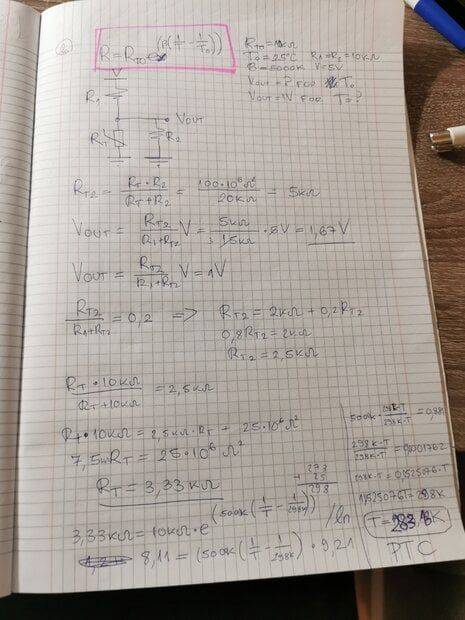 R = R_T0 · e^(B(1/T - 1/T0))
R_T0 = 10kΩ
T0 = 25°C R1=R2=10kΩ
B = 5000K V=5V
VOUT = ? FOR T0
VOUT = 1V FOR T = ?
V
R1
VOUT
RT
R2
R_T2 = RT·R2/(RT+R2) = 100·10^6Ω²/20kΩ = 5kΩ
VOUT = R_T2/(R1+R_T2) V = 5kΩ/15kΩ · 5V = 1,67V
VOUT = R_T2/(R1+R_T2) V = 1V
R_T2/(R1+R_T2) = 0,2 => R_T2 = 2kΩ + 0,2R_T2
0,8R_T2 = 2kΩ
R_T2 = 2,5kΩ
RT·10kΩ/(RT+10kΩ) = 2,5kΩ
RT·10kΩ = 2,5kΩ·RT + 25·10^6Ω²
7,5kΩRT = 25·10^6Ω²
RT = 3,33kΩ
273
+ 25
298
3,33kΩ = 10kΩ·e^(500K(1/T - 1/298K)) /ln
8,11 = (500K(1/T - 1/298K))·9,21
500K · (298K-T)/(298K·T) = 0,881
(298K-T)/(298K·T) = 0,001762
298K-T = 0,525076·T
1,525076T = 298K
PTC